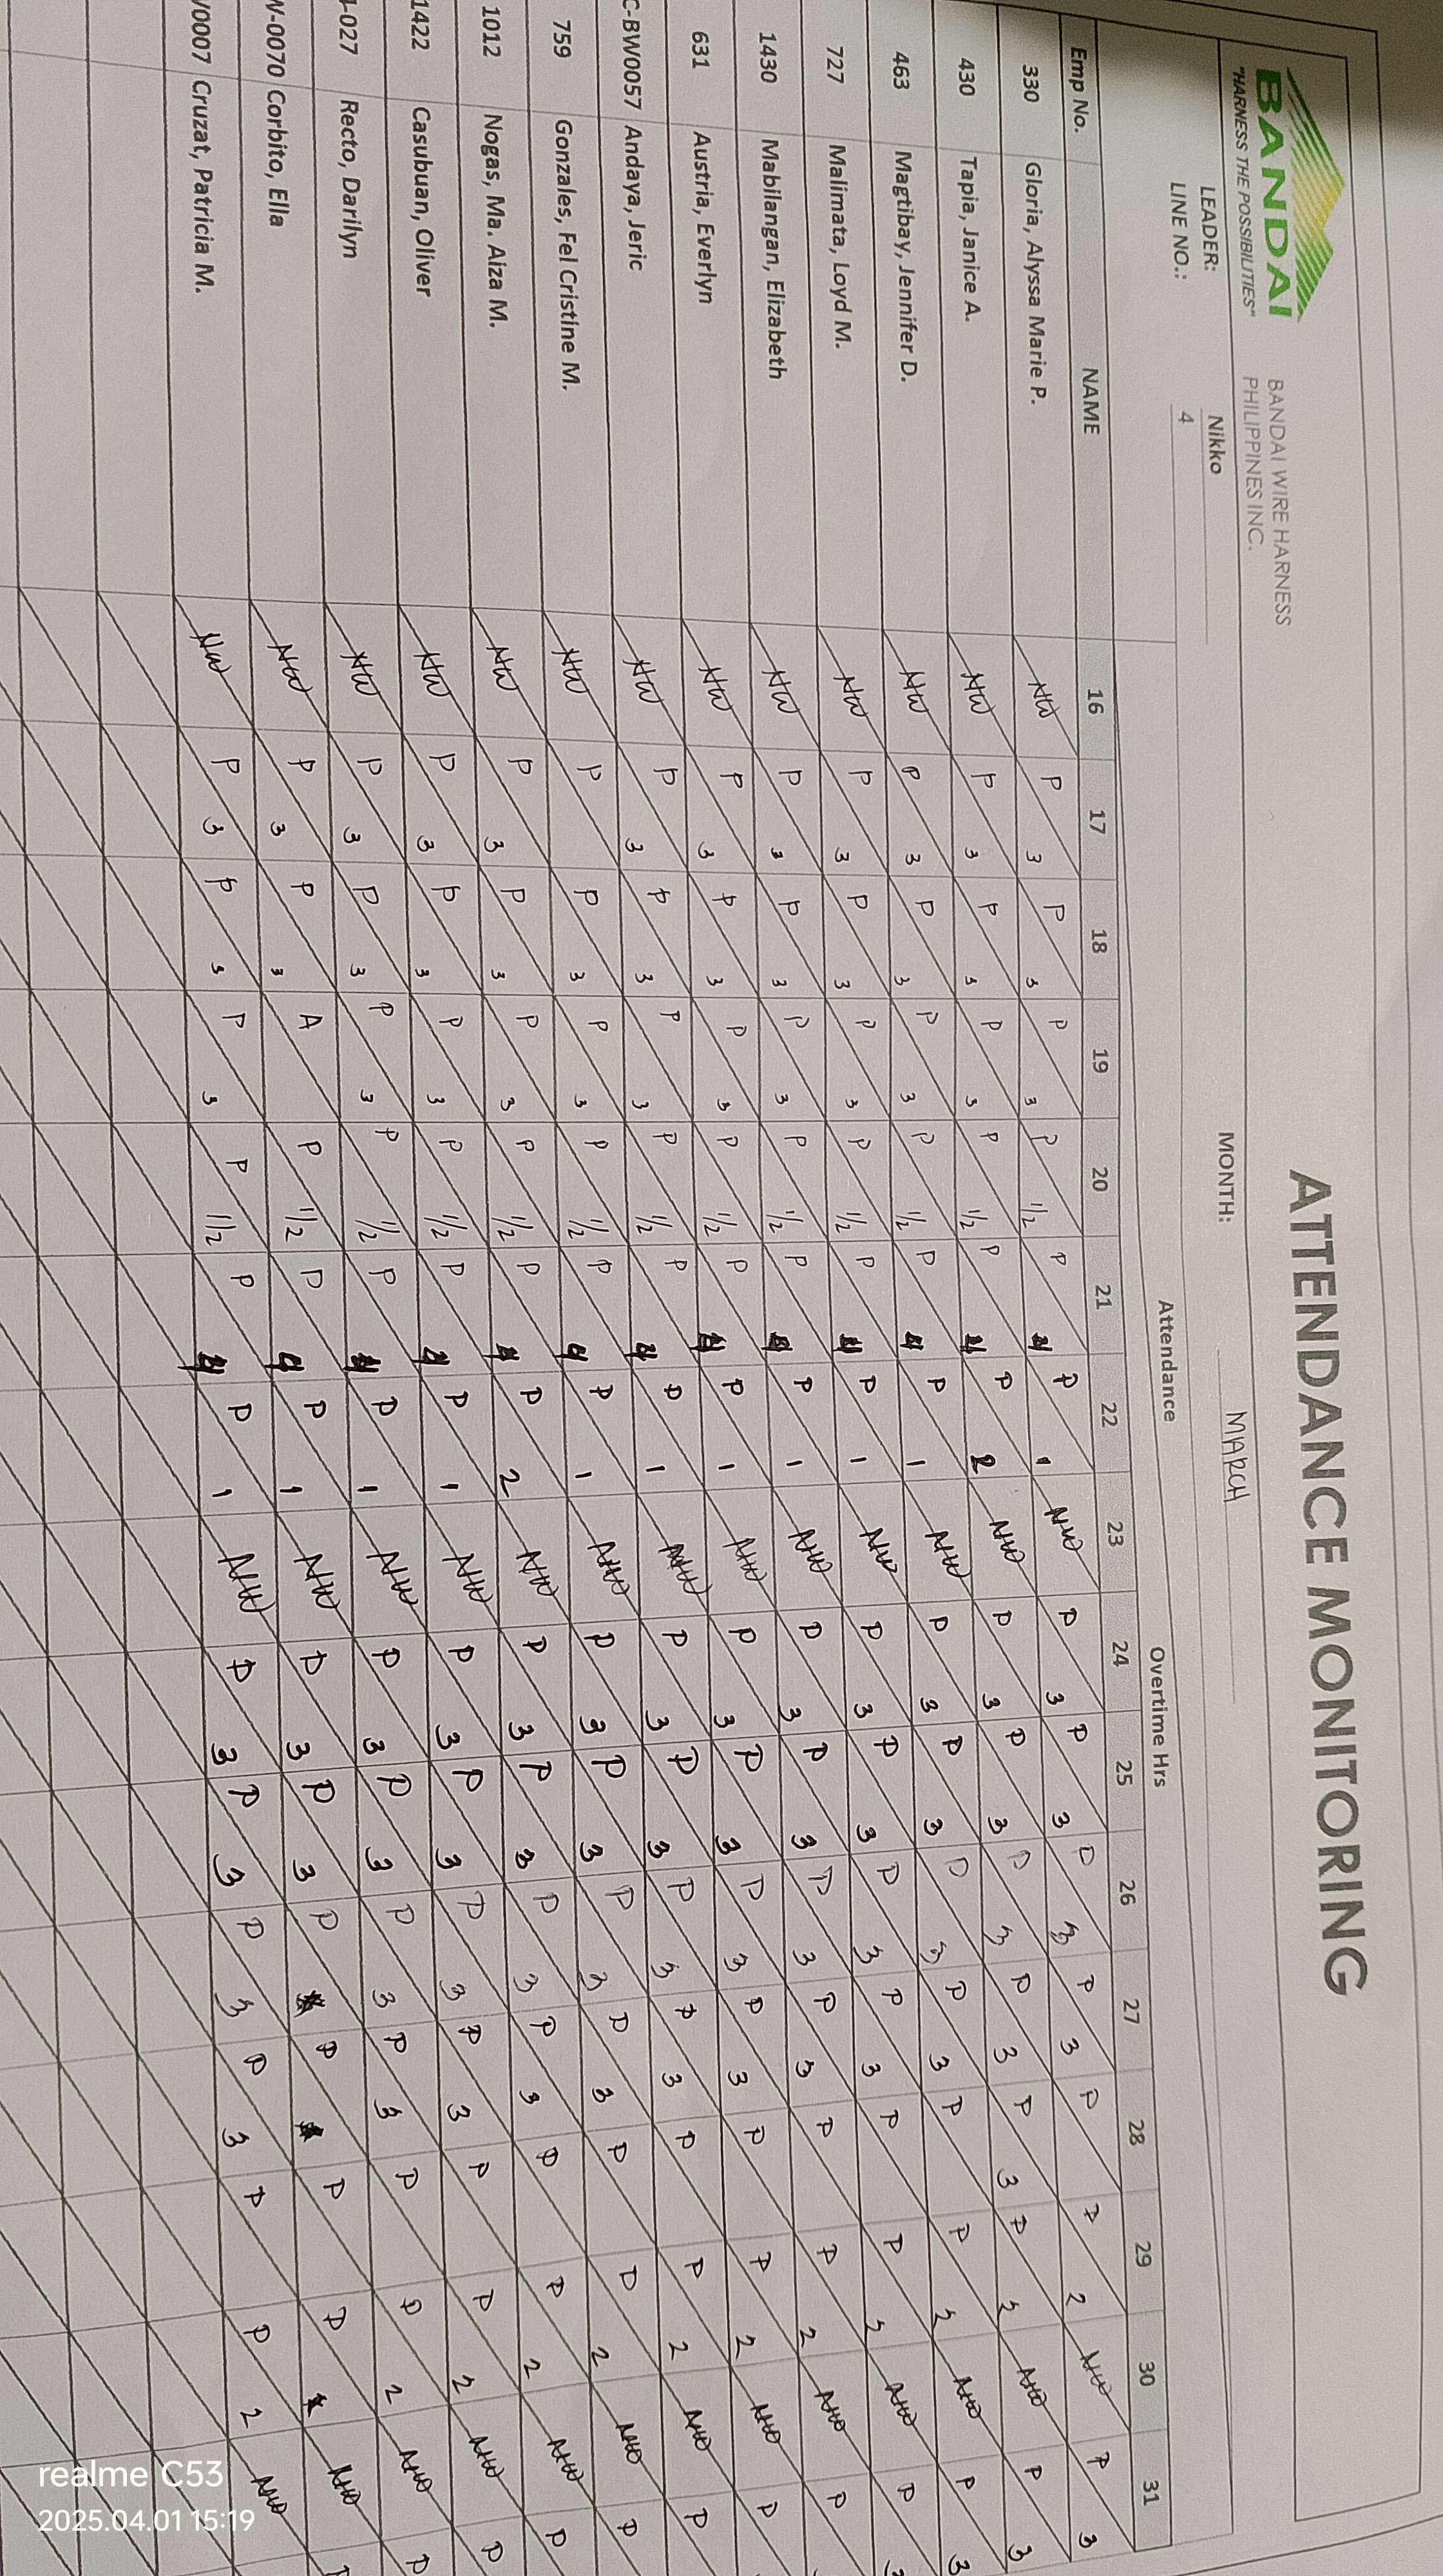 BANDAI
"HARNESS THE POSSIBILITIES"
BANDAI WIRE HARNESS
PHILIPPINES INC.
ATTENDANCE MONITORING
LEADER: Nikko
LINE NO.: 4
MONTH: MARCH
Attendance Overtime Hrs
Emp No. NAME 16 17 18 19 20 21 22 23 24 25 26 27 28 29 30 31
330 Gloria, Alyssa Marie P. NW P 3 P 3 P 3 P 1/2 P P 1 NW P 3 P 3 P 3 P 3 P P 2 NW P 3
430 Tapia, Janice A. NW P 3 P 3 P 3 P 1/2 P P 2 NW P 3 P 3 P 3 P 3 P 3 P NW P 3
463 Magtibay, Jennifer D. NW P 3 P 3 P 3 P 1/2 P P 1 NW P 3 P 3 P 3 P 3 P P NW P 3
727 Malimata, Loyd M. NW P 3 P 3 P 3 P 1/2 P P 1 NW P 3 P 3 P 3 P 3 P P NW P
1430 Mabilangan, Elizabeth NW P 3 P 3 P 3 P 1/2 P P 1 NW P 3 P 3 P 3 P 3 P P 2 NW P
631 Austria, Everlyn NW P 3 P 3 P 3 P 1/2 P P 1 NW P 3 P 3 P 3 P 3 P P 2 NW P
C-BW0057 Andaya, Jeric NW P 3 P 3 P 3 P 1/2 P P 1 NW P 3 P 3 P 3 P 3 P P 2 NW P
759 Gonzales, Fel Cristine M. NW P P 3 P 3 P 1/2 P P 1 NW P 3 P 3 P 3 P 3 P P 2 NW P
1012 Nogas, Ma. Aiza M. NW P 3 P 3 P 3 P 1/2 P P 2 NW P 3 P 3 P 3 P 3 P P 2 NW P
1422 Casubuan, Oliver NW P 3 P 3 P 3 P 1/2 P P 1 NW P 3 P 3 P 3 P 3 P P 2 NW P
-027 Recto, Darilyn NW P 3 P 3 P 3 P 1/2 P P 1 NW P 3 P 3 P 3 P 3 P P 2 NW P
W-0070 Corbito, Ella NW P 3 P 3 A P 1/2 P P 1 NW P 3 P 3 P P P P NW P
0007 Cruzat, Patricia M. NW P 3 P 3 P 3 P 1/2 P P 1 NW P 3 P 3 P 3 P 3 P P 2 NW
realme C53
2025.04.01 15:19